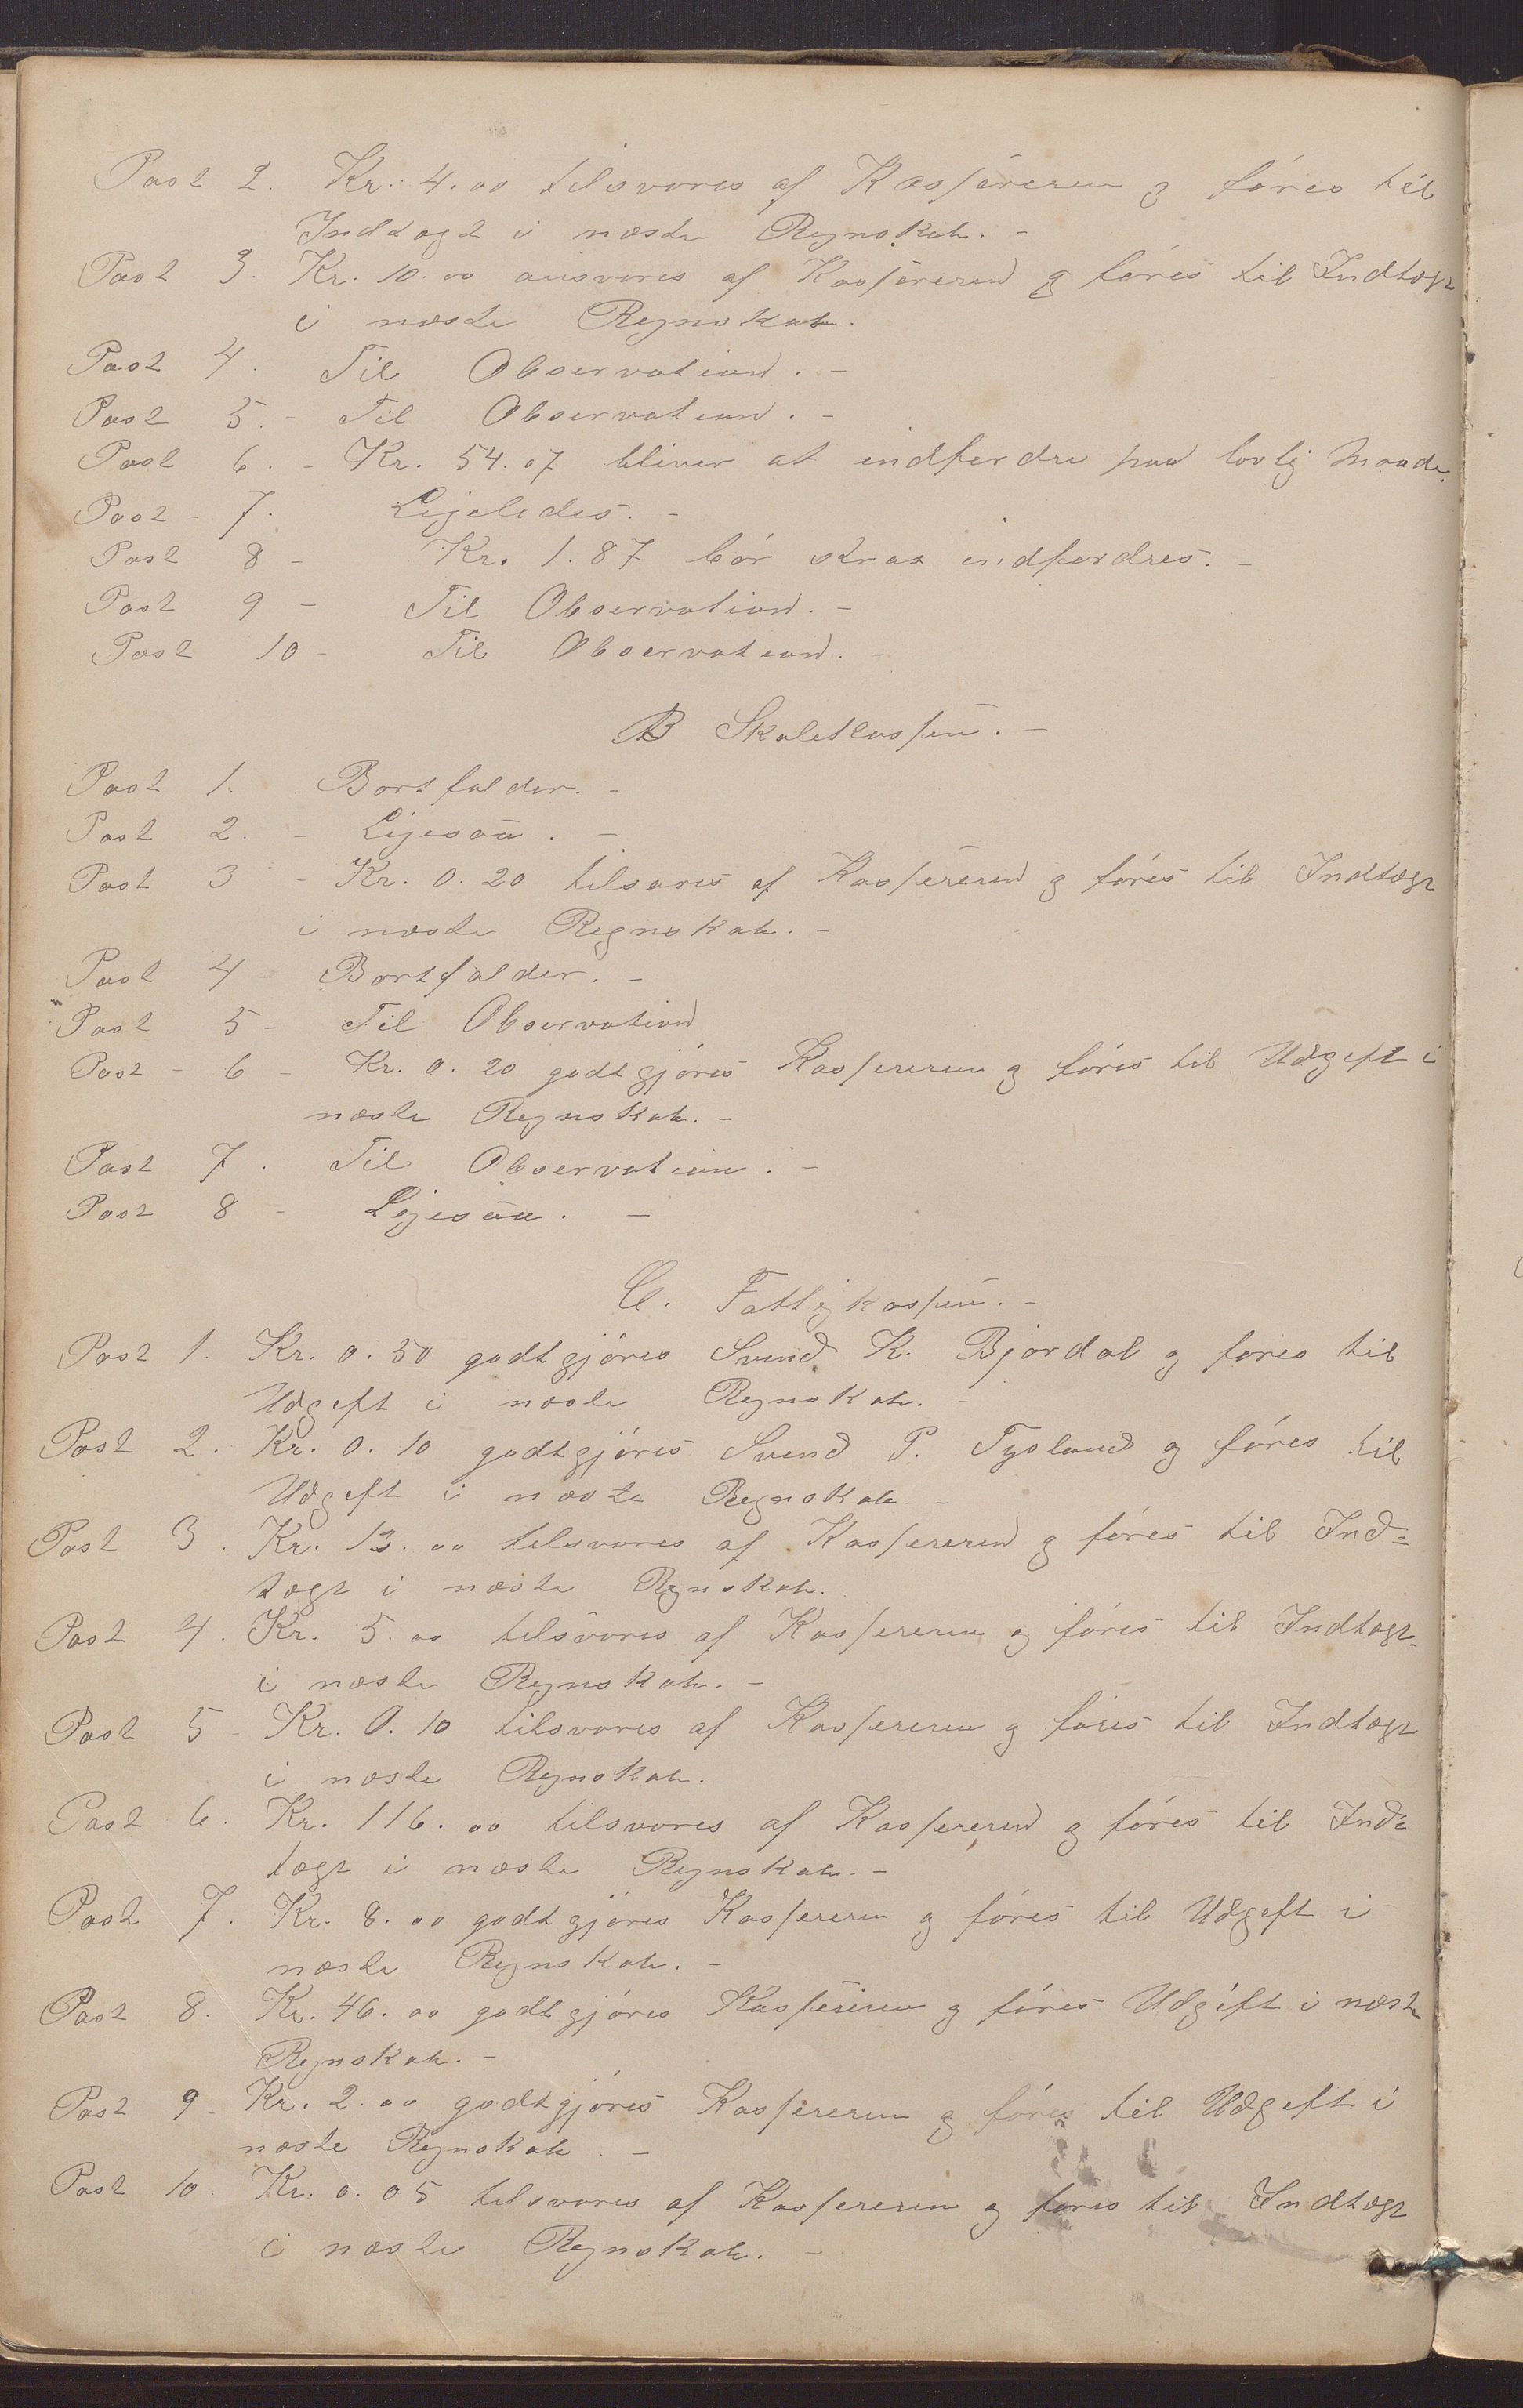 Post 2. Kr. 4.00 tilsvares af Kassereren og föres til
Indtægt i næste Regnskab. -
Post 3. Kr. 10.00 ansvares af Kassereren og föres til Indtægt
i næste Regnskab.
Post 4. Til Observation. -
Post 5. - Til Observation. -
Post 6. - Kr. 54.07 bliver at indfordre paa lovlig Maade.
Post - 7. Ligeledes. -
Post 8 - Kr. 1.87 bör strax indfordres. -
Post 9 - Til Observation. -
Post 10 - Til Observation. -
B Skolekassen. -
Post 1. Bortfalder. -
Post 2. - Ligesaa. -
Post 3 - Kr. 0.20 tilsvares af Kassereren og föres til Indtægt
i næste Regnskab. -
Post 4 - Bortfalder. -
Post 5 - Til Observation
Post - 6 - Kr. 0.20 godtgjöres Kassereren og föres til Udgift i
næste Regnskab. -
Post 7. Til Observation. -
Post 8 - Ligesaa. -
C. Fattigkassen. -
Post 1. Kr. 0.50 godtgjöres Svend K. Bjordal og föres til
Udgift i næste Regnskab. -
Post 2. Kr. 0.10 godtgjöres Svend P. Tysland og föres til
Udgift i næste Regnskab. -
Post 3. Kr. 13.00 tilsvares af Kassereren og föres til Ind=
tægt i næste Regnskab.
Post 4. Kr. 5.00 tilsvares af Kassereren og föres til Indtægt
i næste Regnskab. -
Post 5 - Kr. 0.10 tilsvares af Kassereren og föres til Indtægt
i næste Regnskab.
Post 6. Kr. 116.00 tilsvares af Kassereren og föres til Ind=
tægt i næste Regnskab. -
Post 7. Kr. 8.00 godtgjöres Kassereren og föres til Udgift i
næste Regnskab. -
Post 8. Kr. 46.00 godtgjöres Kassereren og föres Udgift i næste
Regnskab. -
Post 9 - Kr. 2.00 godtgjöres Kassereren og föres til Udgift i
næste Regnskab. -
Post 10. Kr. 0.05 tilsvares af Kassereren og föres til Indtægt
i næste Regnskab. -